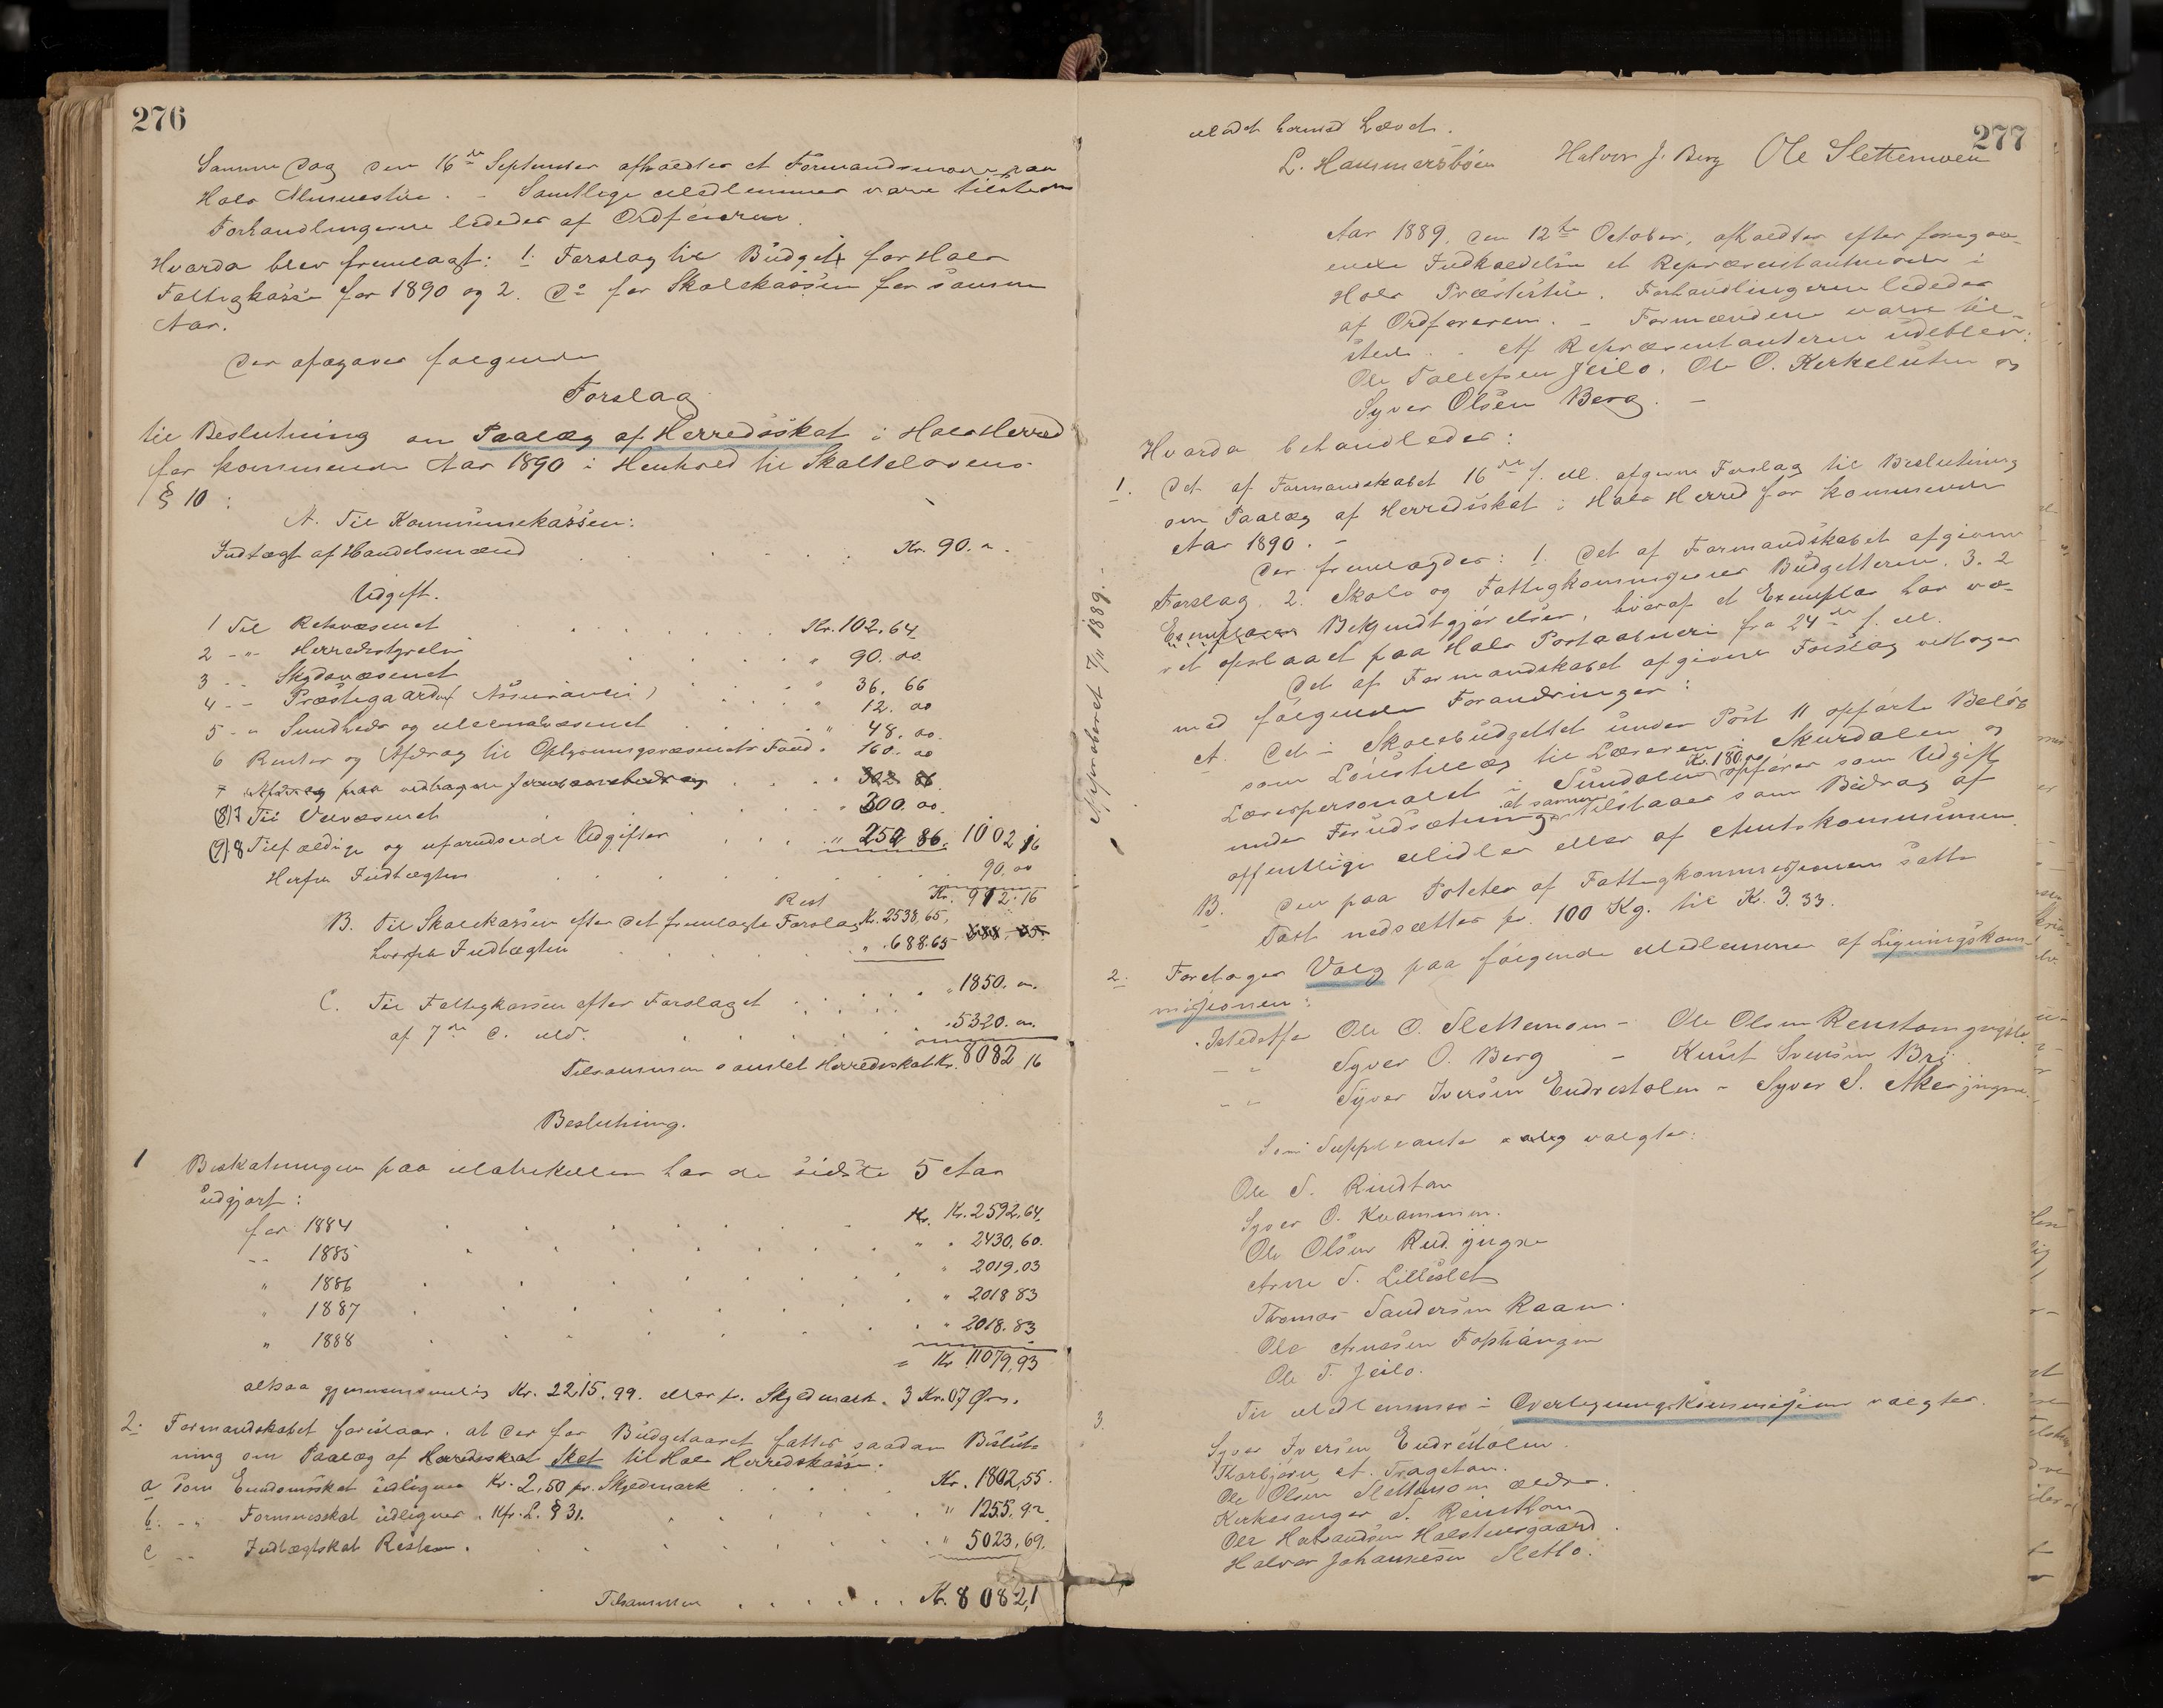 276
Samme Dag den 16de September afholdtes et Formandsmøde paa
Hols Almuestue. - Samtlige Medlemmer vare tilstede
Forhandlingerne lededes af Ordføreren.
Hvorda blev fremlagt: 1. Forslag til Budget for Hols
Fattigkasse for 1890 og 2. Do for Skolekassen for samme
Aar.
Der afgaves følgende
Forslag
til Beslutning om Paalæg af Herredsskat i Hols Herred
for kommende Aar 1890 i Henhold til Skattelovens
§ 10:
A. Til Kommunekassen:
Indtægt af Handelsmænd Kr. 90. "
Udgift.
1 Til Retsvæsenet Kr. 102,64
2 - " - Herredsstyrelse " 90. 00
3 - - Skydsvæsenet " 36. 66
4 - - Præstegaarden (Assurance) " 12. 00
5 - " Sundheds og Medicinalvæsenet " 48. 00
6 Renter og Afdrag til Oplysningsvæsenets Fond " 160. 00
7 Afdrag paa vedtagne Jernbanebidrag 302 86
(8) 7 Til Veivæsenet " 300. 00
(9) 8 Tilfældige og uforudseede Udgifter " 252 86. 1002 16
Herfra Indtægten 90. 00
Rest Kr. 912. 16
B. Til Skolekassen efter det fremlagte Forslag Kr. 2538,65,
herfra Indtægten " 688.65
" 1850. 00.
C. Til Fattigkassen efter Forslaget
af 7de d. Md. " 5320. 00.
Tilsammen samlet Herredsskat Kr. 8082 16
Beslutning.
1 Beskatningen paa Matrikullen har de sidste 5 Aar
udgjort:
for 1884 Kr. Kr. 2592,64.
-- 1885 " " 2430,60.
" 1886 " 2019,03
" 1887 " 2018 83
" 1888 " 2018. 83
= Kr 11079,93
altsaa gjennemsnitlig Kr. 2215. 99. eller pr. Skyldmark. 3 Kr. 07 Øre.
2. Formandskabet foreslaar, at der for Budgetaaret fattes saadan Beslut-
ning om Paalæg af Herredsskat Skat til Hols Herredskasse:
a Som Eiendomsskat udlignes Kr. 2,50 pr. Skyldmark Kr. 1802,55.
b. - " Formuesskat udlignes. Kfr. L. § 31. " 1255. 92
c -- Indtægtskat Resten. " 5023,69.
Tilsammen Kr. 8082,1
277
Mødet hermed hævet.
L. Hammersbøen Halvor J. Berg Ole Slettemoen
Aar 1889, den 12te October, afholdtes efter foregaa-
ende Indkaldelse et Repræsentantmøde i
Hols Præstestue. Forhandlingerne lededes
af Ordføreren. - Formændene vare til-
stede. - Af Repræsentanterne udebleve:
Ole Tollefsen Jeilo, Ole O. Kirkeluten og
Syver Olsen Berg. -
Hvorda behandledes:
1. Det af Formandskabet 16de f. M. afgivne Forslag til Beslutning
om Paalæg af Herredsskat i Hols Herred for kommende
Aar 1890. -
Der fremlagdes: 1. Det af Formandskabet afgivne
Forslag. 2. Skole og Fattigkommissionens Budgetterne. 3. 2
Exemplarer Bekjendtgjørelser, hvoraf et Exemplar har væ-
ret opslaaet paa Hols Postaabneri fra 24de f. M.
Det af Formandskabet afgivne Forslag vedtages
med følgende Forandringer:
A. Det i Skolebudgettet under Post 11 opførte Beløb
som Lønstillæg til Læreren i Skurdalen og
Lærerpersonalet i Sundalen Kr. 180,00 opføres som Udgift
under Forudsætning at samme tilstaaes som Bidrag af
offentlige Midler eller af Amtskommunen.
B. Den paa Poteter af Fattigkommissionen satte
Taxt nedsættes pr. 100 Kg. til K. 3.33.
2. Foretoges Valg paa følgende Medlemmer af Ligningskom-
missionen:
Istedetfor Ole O. Slettemoen - Ole Olsen Reinton yngste.
- " Syver O. Berg - Knut Svensen Bri
- " Syver Iversen Endrestølen - Syver S. Aker yngre.
Som Suppleanter valgtes:
Ole S. Rudtan
Syver O. Kvammen.
Ole Olsen Rud yngre
Arne S. Lilleslet
Thomas Sandersen Raaen.
Ole Arnesen
Ole T. Jeilo.
3. Til Medlemmer i Overligningskommissionen valgtes.
Syver Iversen Endrestølen.
Torbjørn A. Trageton.
Ole Olsen Slettemoen ældre.
Kirkesanger S. Reinton
Ole Halvandsen Holstensgaard.
Halvor Johannesen Sletto.
Approberet 7/11 1889. -